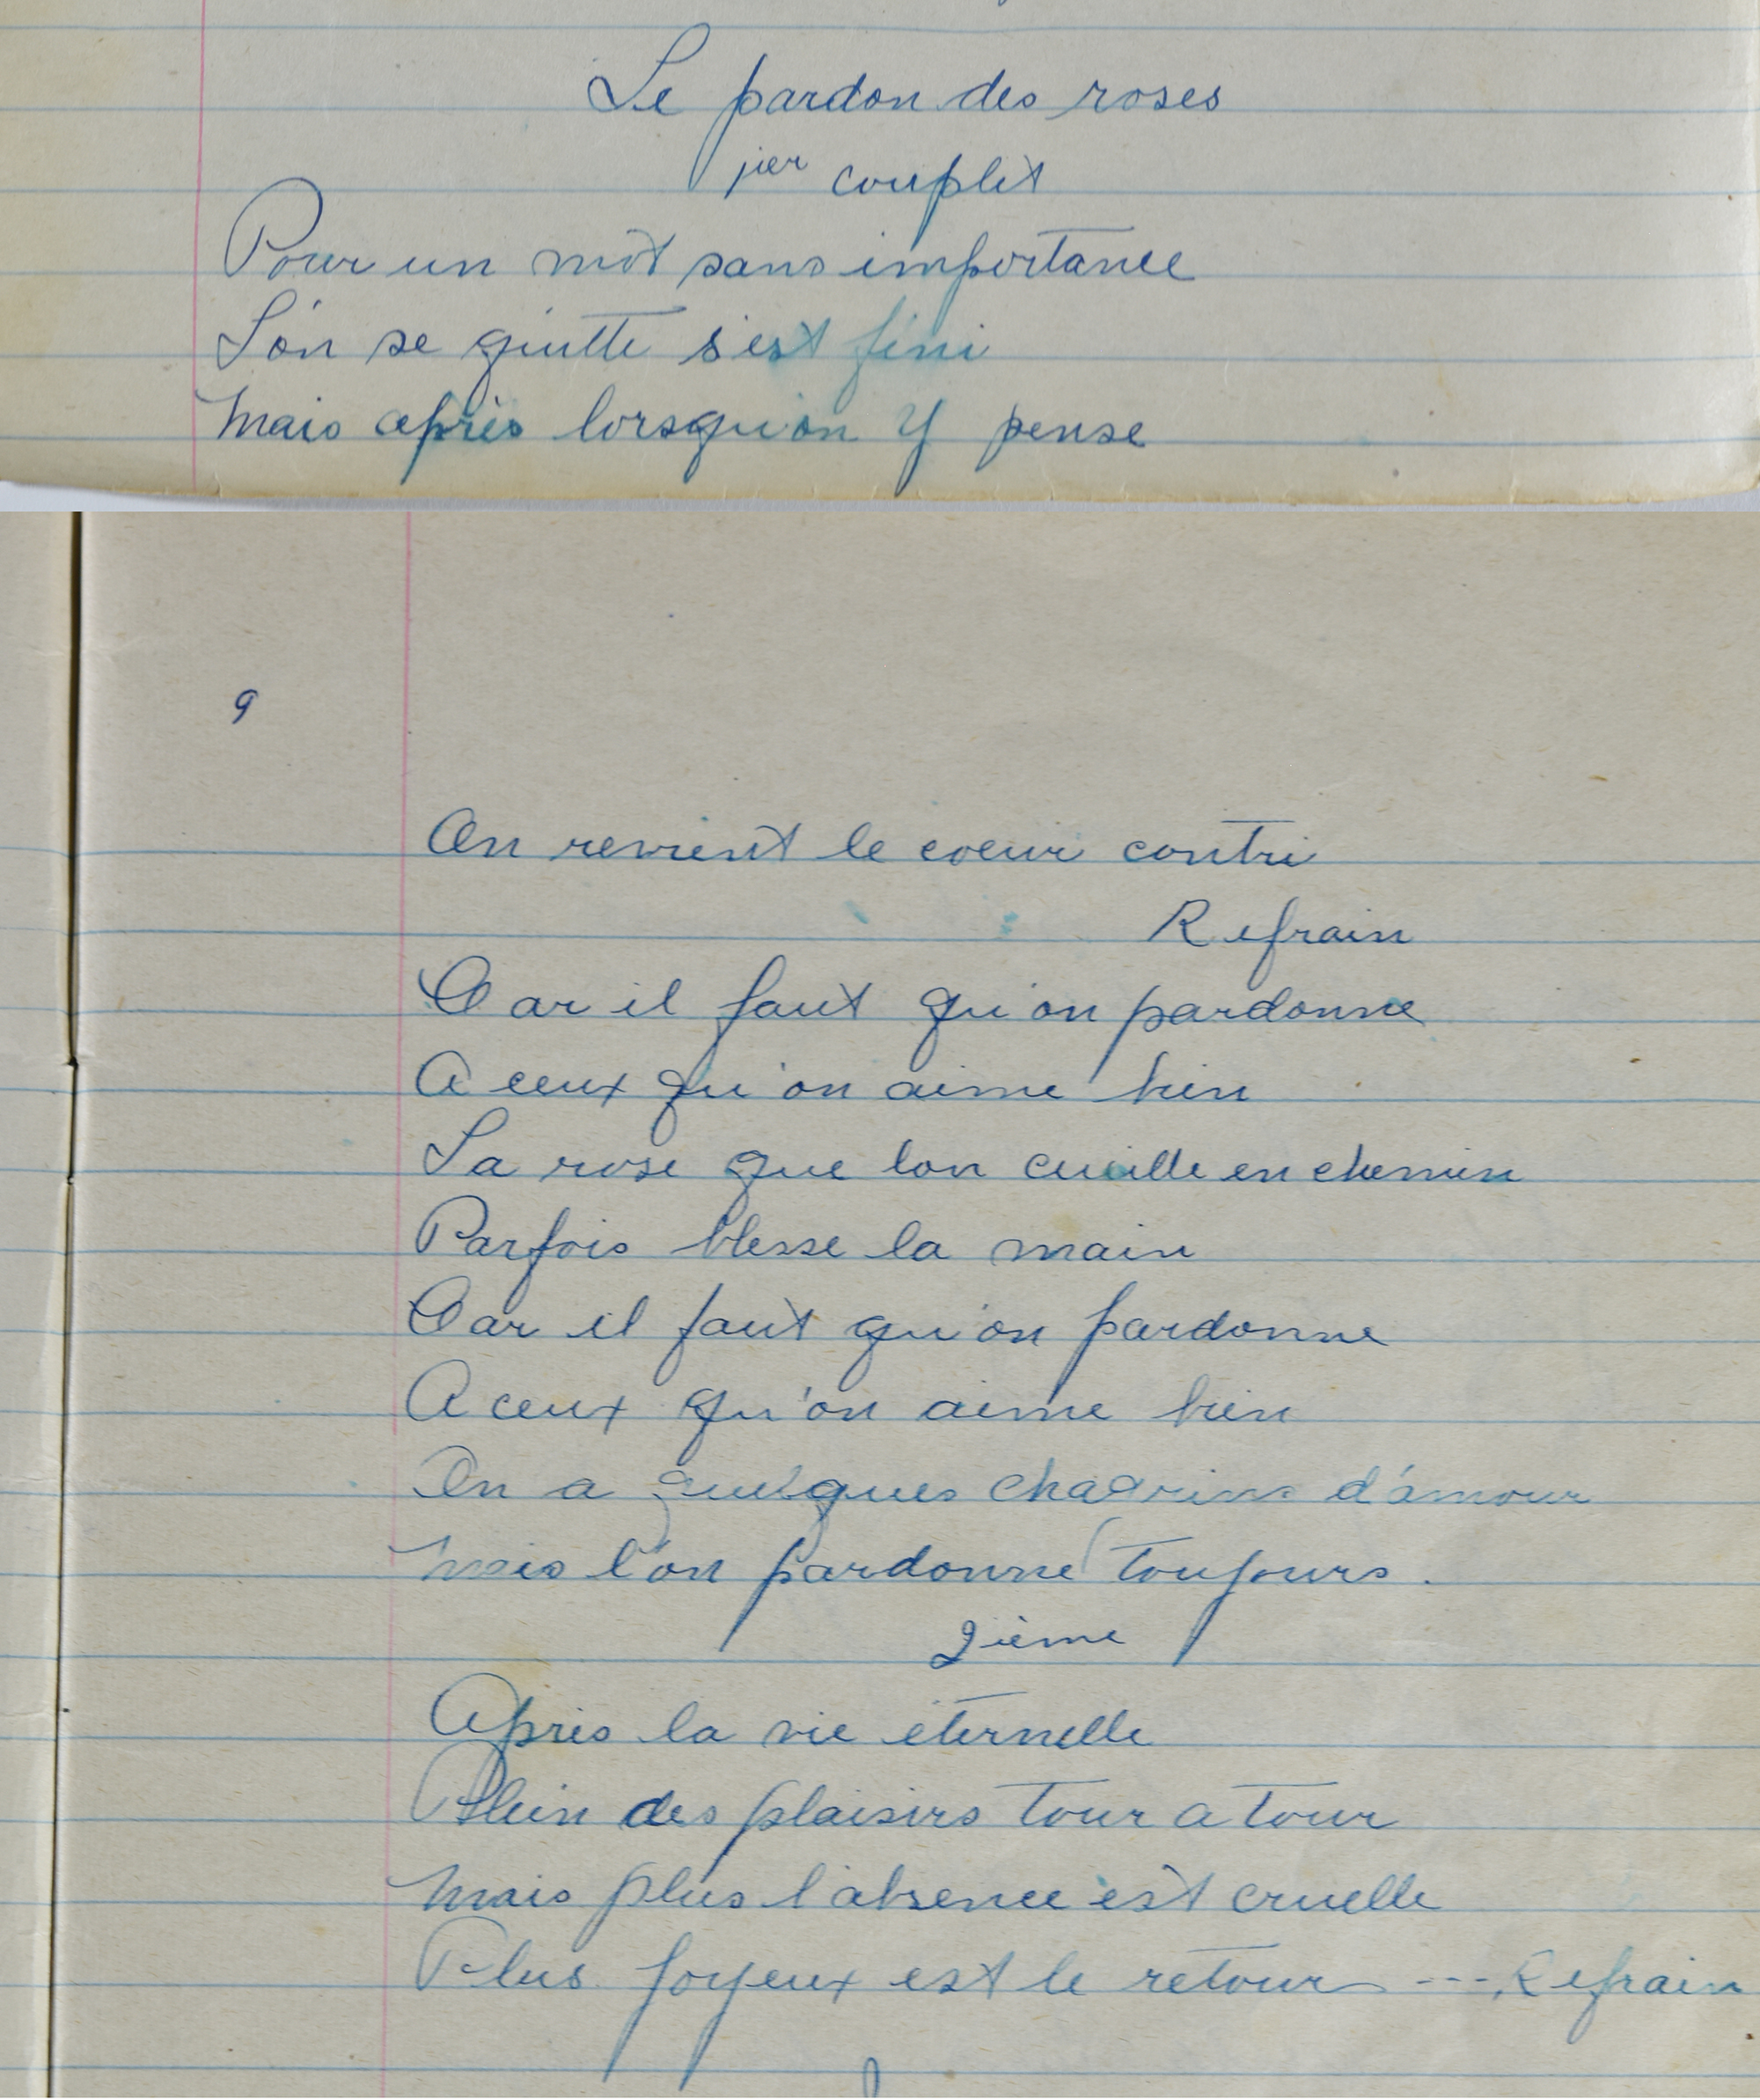 Le pardon des roses
1ier couplet
Pour un mot sans importance
L'on se quitte s'est fini
Mais après lorsqu'on y pense
9
On revient le coeur contri
Refrain
Car il faut qu'on pardonne
A ceux qu'on aime bien
La rose que lon cueille en chemin
Parfois blesse la main
Car il faut qu'on pardonne
A ceux qu'on aime bien
On a quelques chagrins d'amour
Mais l'on pardonne toujours.
2ième
Après la vie éternelle
Plein des plaisirs tour a tour
Mais plus l'absence est cruelle
Plus joyeux est le retour --- Refrain